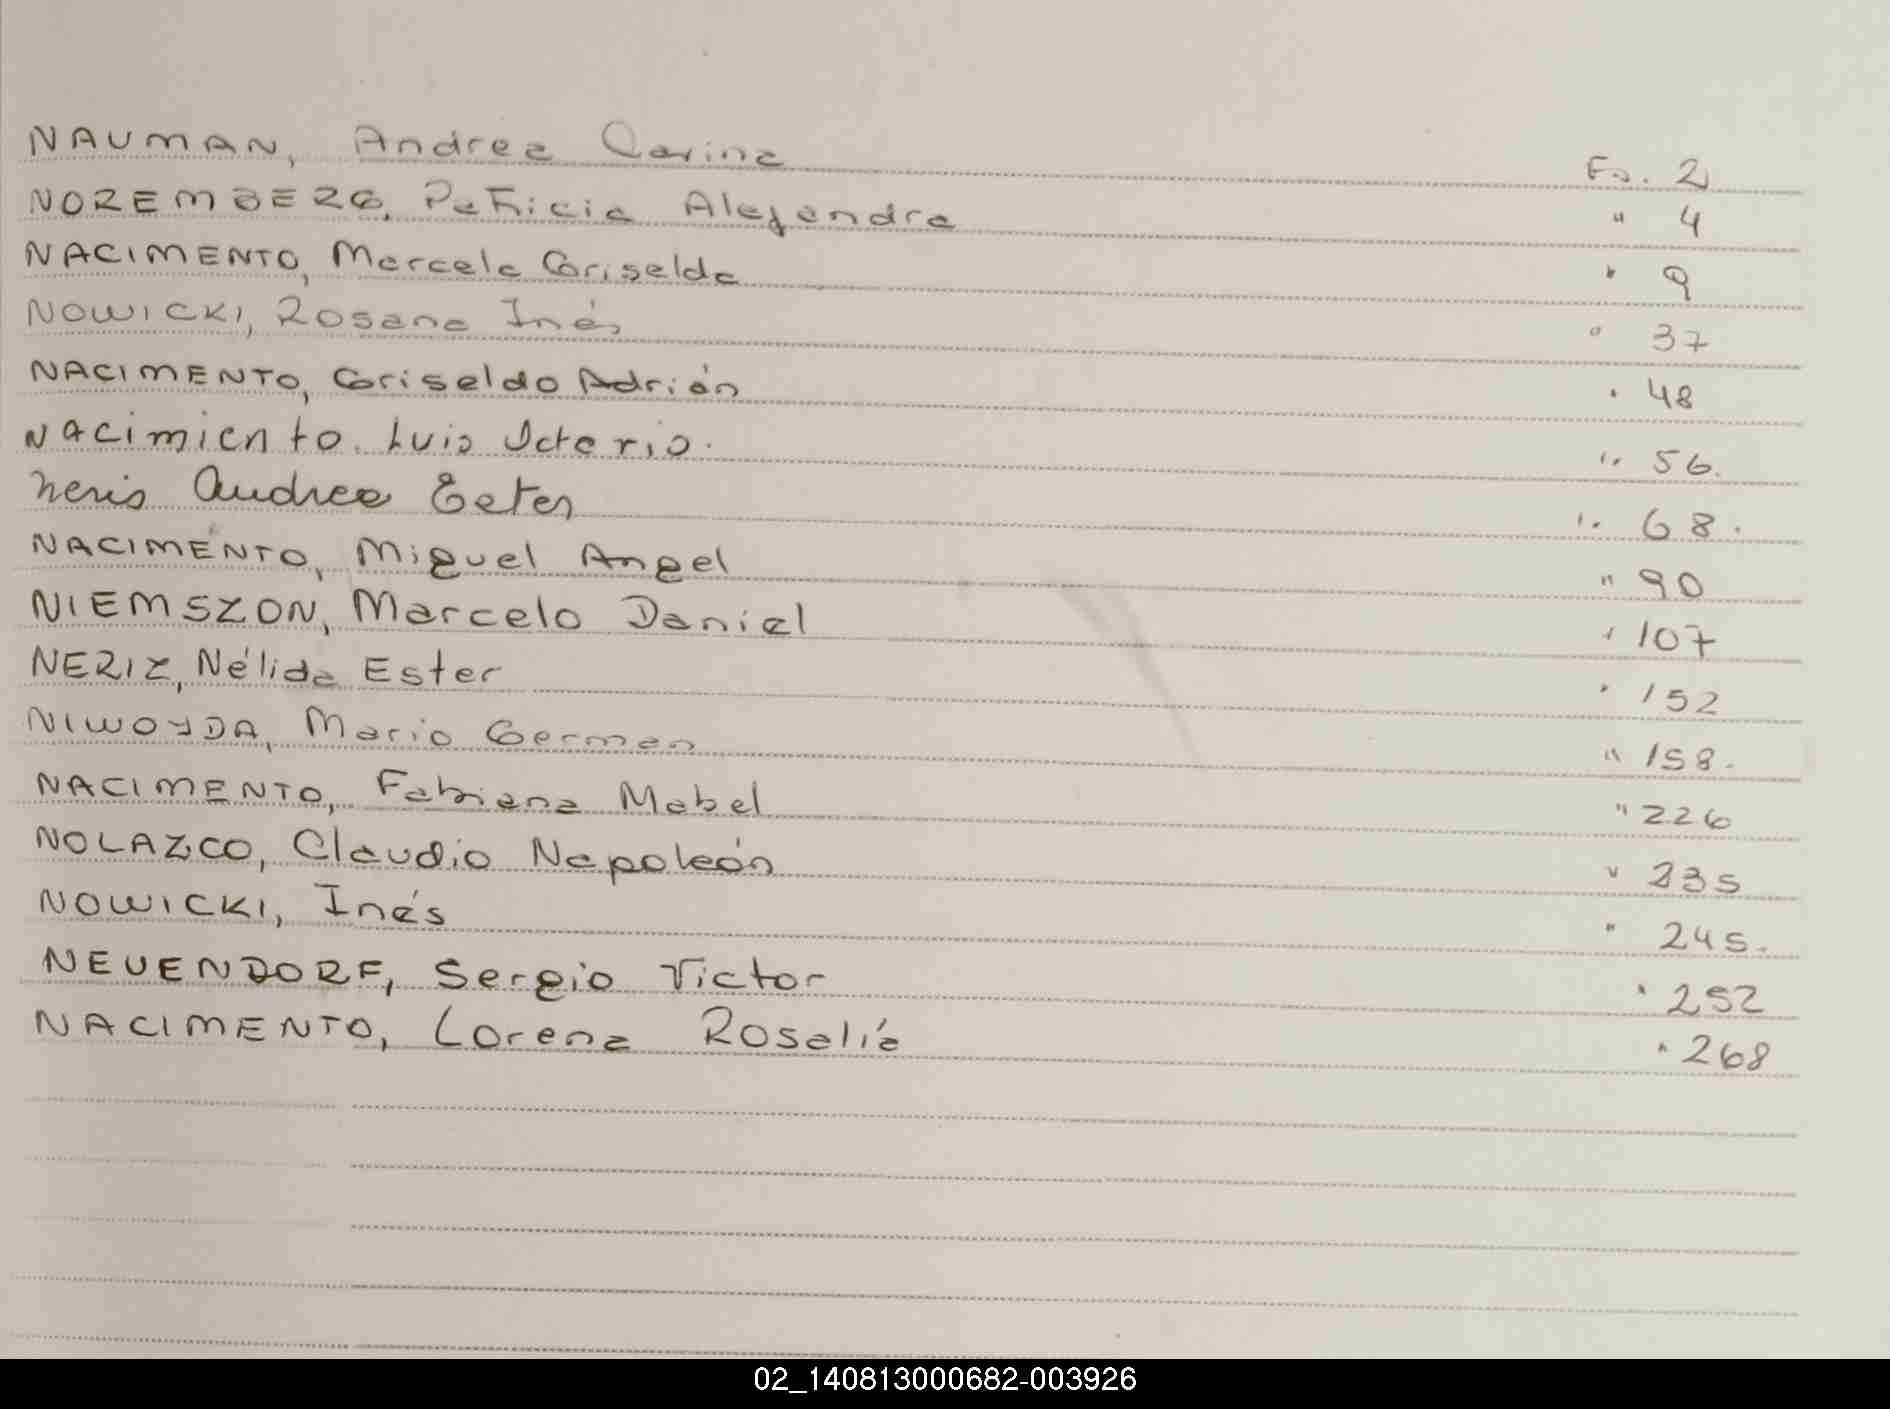 NAUMAN, Andrea Carina Fo. 2
NOREMBERG, Patricia Alejandra " 4
NACIMENTO, Marcela Griselda " 9
NOWICKI, Rosana Inés " 37
NACIMENTO, Griseldo Adrián " 48
Nacimiento. Luis 56.
Neris Andrea Ester " 68.
NACIMENTO, Miguel Angel " 90
NIEMSZON, Marcelo Daniel " 107
NERIZ, Nélida Ester " 152
NIWOYDA, Mario German " 158.
NACIMENTO, Fabiana Mabel " 226
NOLAZCO, Claudio Napoleón " 235
NOWICKI, Inés " 245.
NEUENDORF, Sergio Victor " 252
NACIMENTO, Lorena Rosalía " 268
02_140813000682-003926